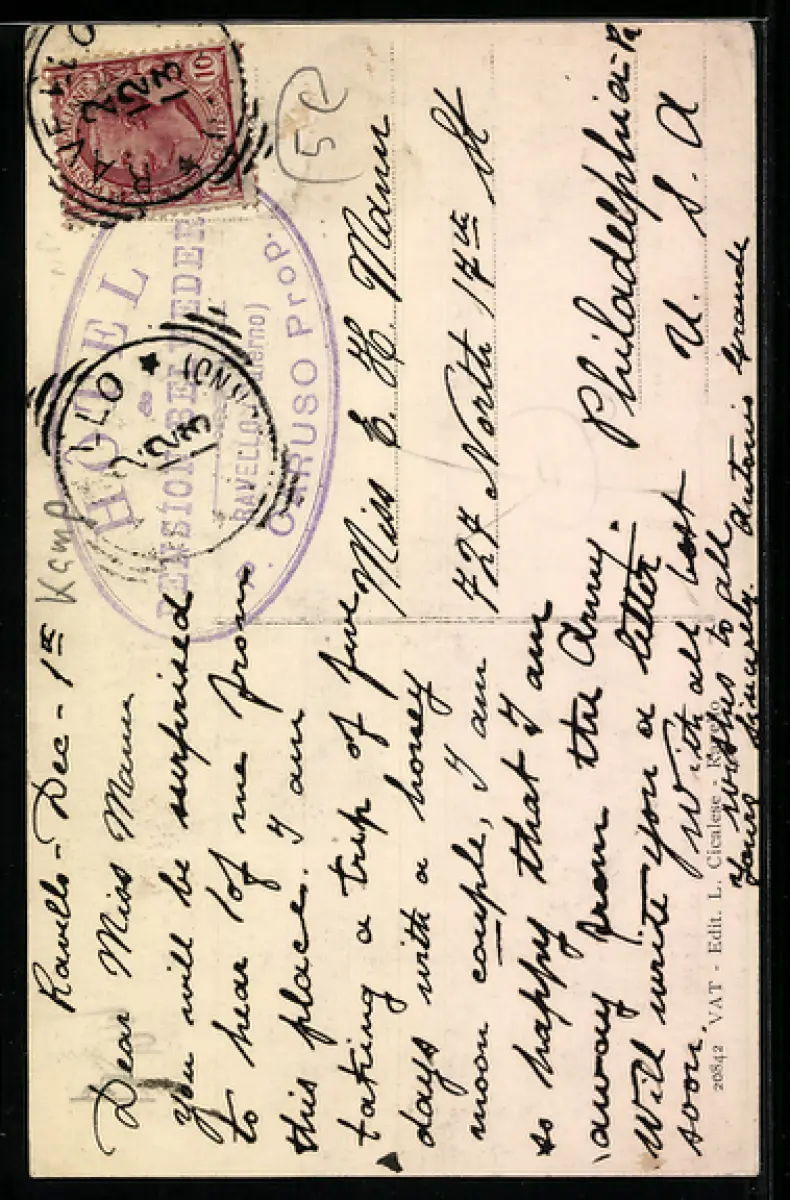 Ravello - Dec - 1st
Dear Miss Mann
You will be surprised
to hear of me from
this places. I am
taking a trip of five
days with a honey
moon couple, I am
so happy that I am
away from the Army.
Will write you a letter
soon. With all best
wishes to all
Yours Sincerely. Antonio Grande
Kamp
HOTEL
&
PENSION BELVEDERE
RAVELLO (Salerno)
CARUSO Prop.
RAVELLO
2 12 23
10
5e
Miss E. H. Mann
727 North 17th St
Philadelphia - Pa
U. S. A
20842 VAT - Edit. L. Cicalese - Ravello